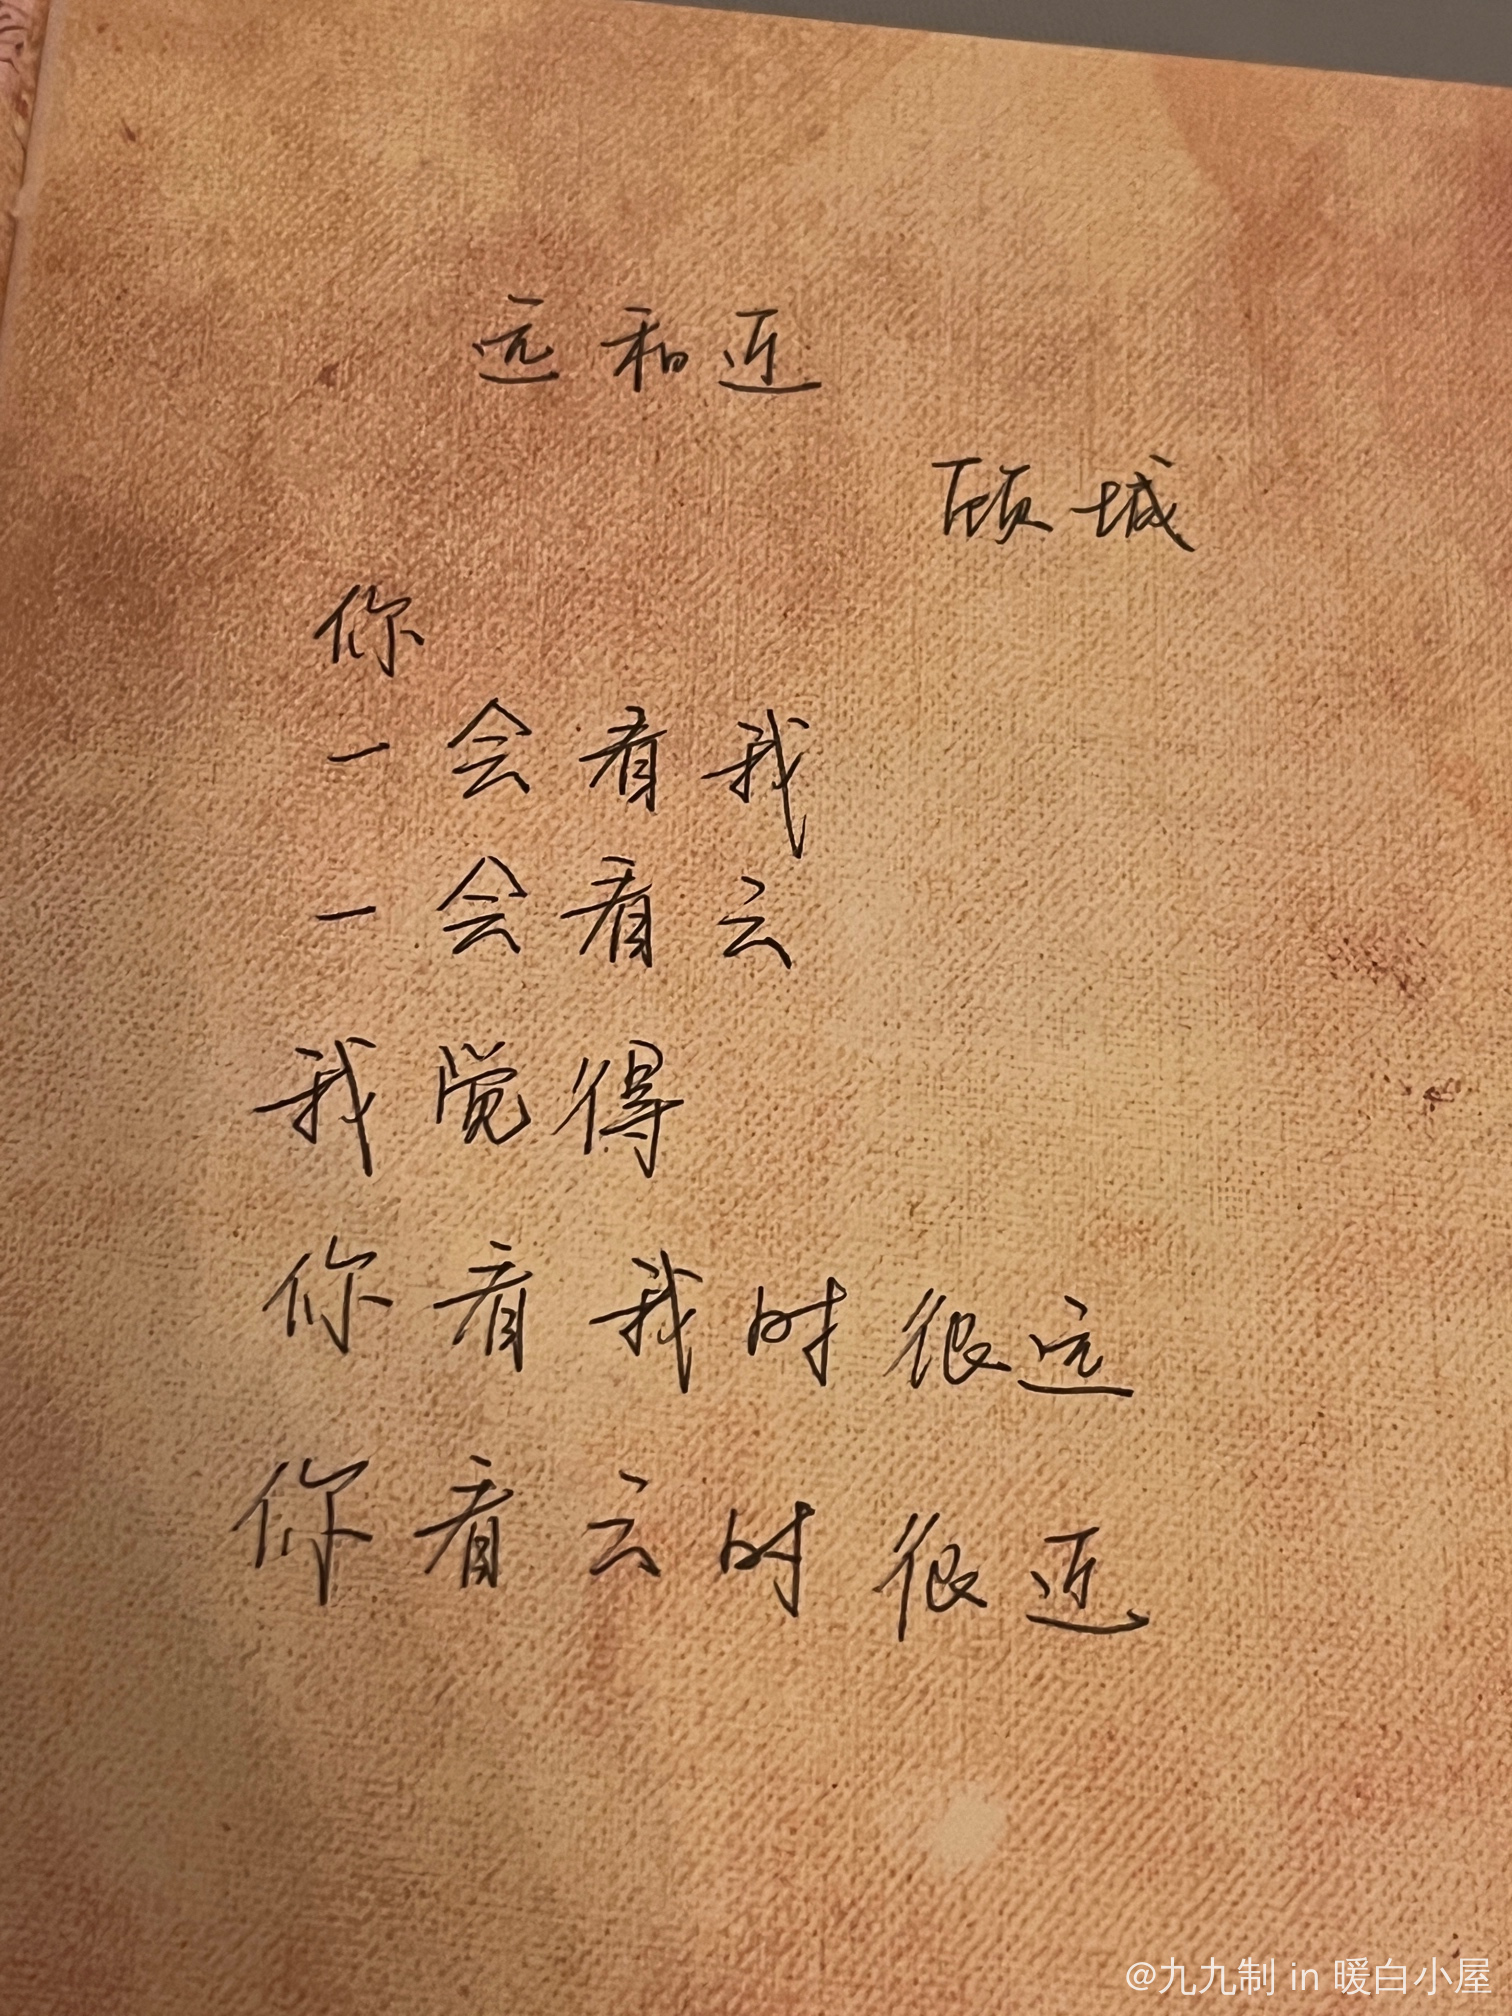 远和近
顾城
你
一会看我
一会看云
我觉得
你看我时很远
你看云时很近
@九九制 in 暖白小屋